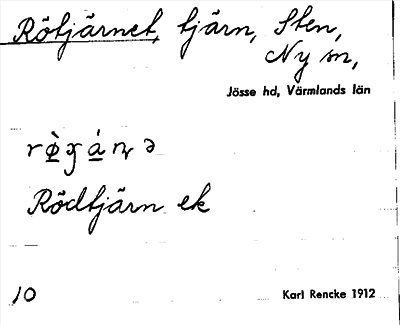 Rötjärnet, tjärn, Sten,
Ny sn,
Jösse hd, Värmlands län
Rödtjärn ek
10
Karl Rencke 1912